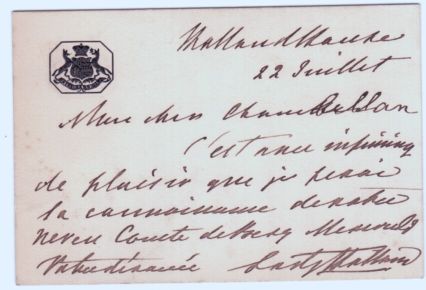 Holland House
22 Juillet
Mon cher Chambellan
C'est avec infiniment
de plaisir que je ferai
la connaissance de votre
neveu Comte de Bosq
Votre dévouée Lady Holland